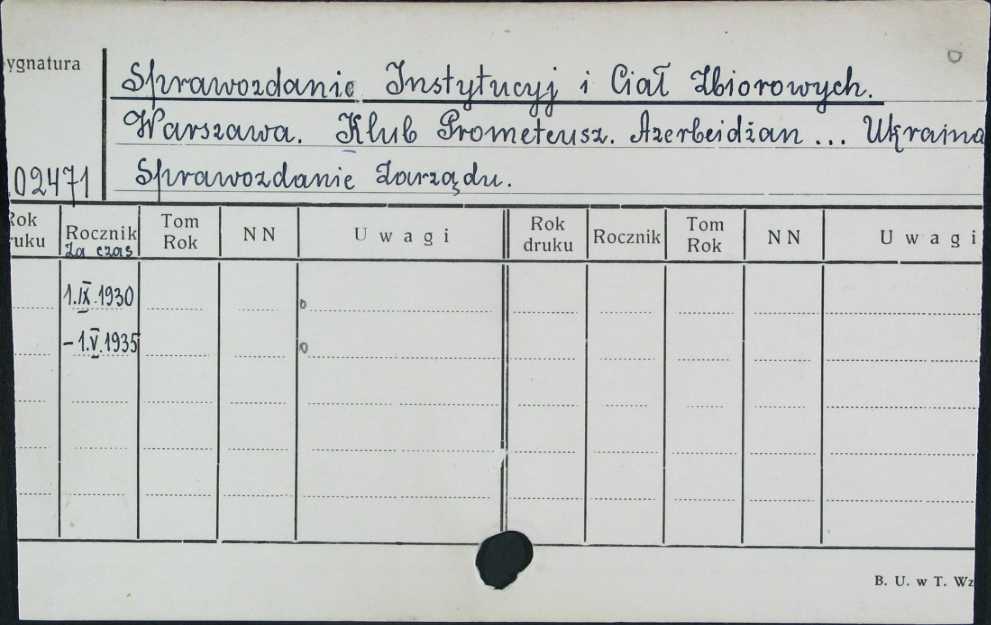 ygnatura
Sprawozdanie Instytucyj i Ciał Zbiorowych.
Warszawa. Klub Prometeusz. Azerbeidżan ... Ukraina
02471 Sprawozdanie Zarządu.
Rok druku Rocznik Tom Rok NN Uwagi Rok druku Rocznik Tom Rok NN Uwagi
Za czas
1.IX.1930
- 1.V.1935
B. U. w T. Wz